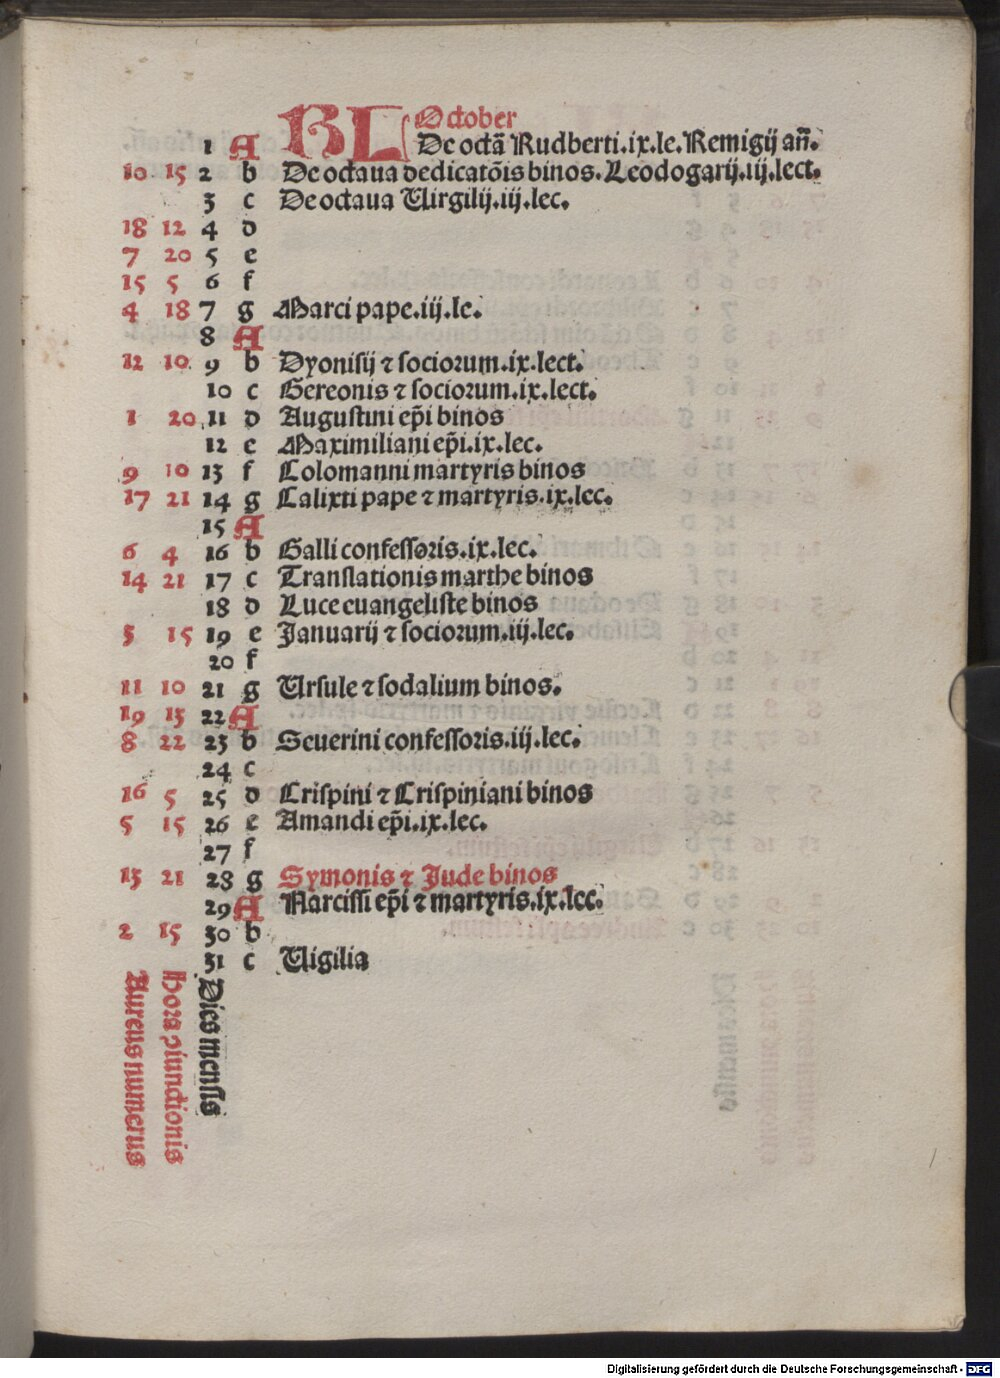 KL October
1 A De octã Rudberti.ix.le.Remigij añ.
10 15 2 b De octaua dedicatõis binos.Leodogarij.iij.lect.
3 c De octaua Uirgilij.iij.lec.
18 12 4 d
7 20 5 e
15 5 6 f
4 18 7 g Marci pape.iij.le.
8 A
12 10 9 b Dyonisij ⁊ sociorum.ix.lect.
10 c Gereonis ⁊ sociorum.ix.lect.
1 20 11 d Augustini ep̃i binos
12 e Maximiliani ep̃i.ix.lec.
9 10 13 f Colomanni martyris binos
17 21 14 g Calixti pape ⁊ martyris.ix.lec.
15 A
6 4 16 b Galli confessoris.ix.lec.
14 21 17 c Translationis marthe binos
18 d Luce euangeliste binos
3 15 19 e Januarij ⁊ sociorum.iij.lec.
20 f
11 10 21 g Ursule ⁊ sodalium binos.
19 13 22 A
8 22 23 b Seuerini confessoris.iij.lec.
24 c
16 5 25 d Crispini ⁊ Crispiniani binos
5 15 26 e Amandi ep̃i.ix.lec.
27 f
13 21 28 g Symonis ⁊ Jude binos
29 A Narcissi ep̃i ⁊ martyris.ix.lec.
2 15 30 b
31 c Uigilia
Aureus numerus
Hora ꝯiunctionis
Dies mensis
Digitalisierung gefördert durch die Deutsche Forschungsgemeinschaft - DFG